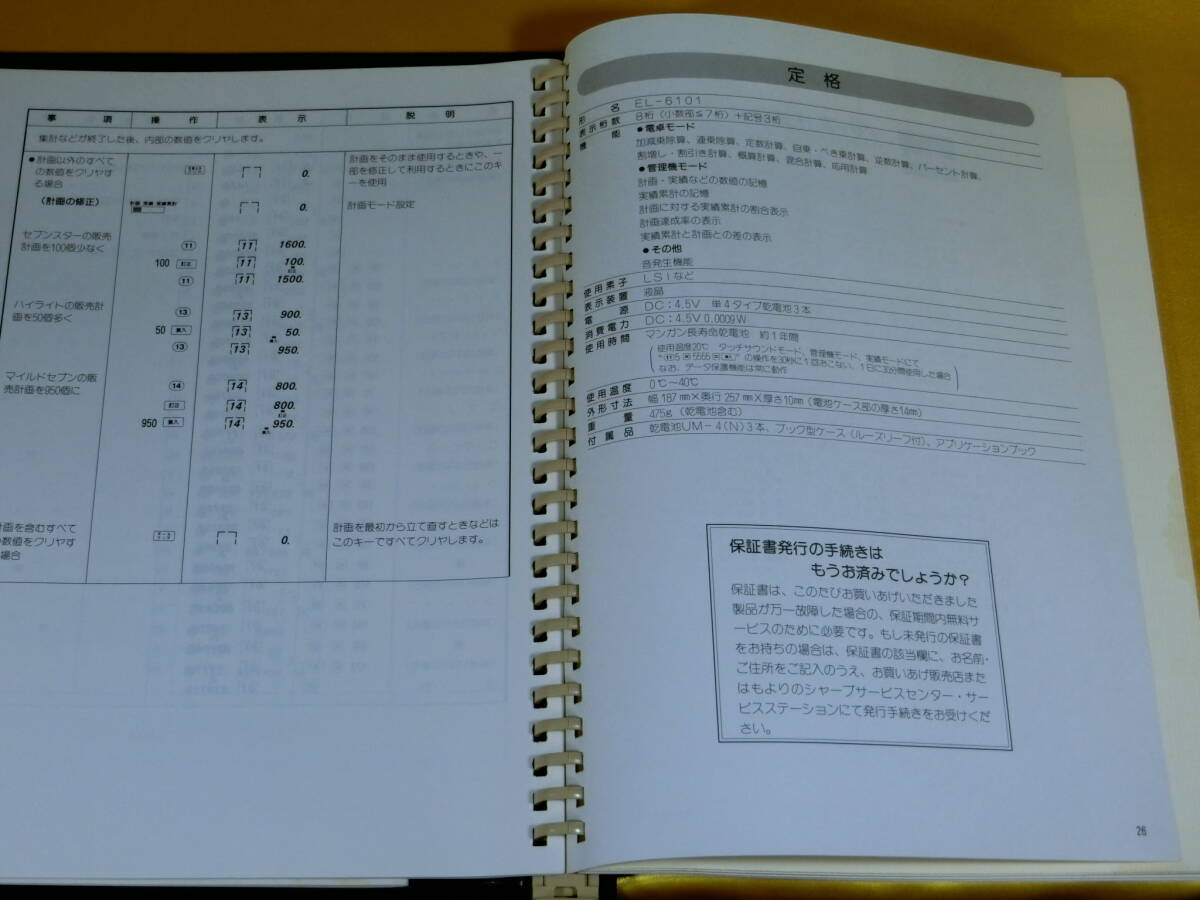 事 項 操 作 表 示 説 明
集計などが終了した後、内部の数値をクリヤします。
●計画以外のすべて
の数値をクリヤす
る場合
0.
計画をそのまま使用するときや、一
部を修正して利用するときにこのキ
ーを使用
(計画の修正)
計画 実績 実績累計
0.
計画モード設定
セブンスターの販売
計画を100個少なく
11 11 1600.
100 訂正 11 100.
訂正
11 11 1500.
ハイライトの販売計
画を50個多く
13 13 900.
50 算入 13 50.
算入
13 13 950.
マイルドセブンの販
売計画を950個に
14 14 800.
訂正 14 800.
訂正
950 算入 14 950.
算入
計画を含むすべて
の数値をクリヤす
場合
0.
計画を最初から立て直すときなどは
このキーですべてクリヤします。
定 格
形 名 EL-6101
表示桁数 8桁(小数部≦7桁)+記号3桁
機 能 ●電卓モード
加減乗除算、連乗除算、定数計算、自乗・べき乗計算、逆数計算、パーセント計算、
割増し・割引き計算、概算計算、混合計算、応用計算
●管理機モード
計画・実績などの数値の記憶
実績累計の記憶
計画に対する実績累計の割合表示
計画達成率の表示
実績累計と計画との差の表示
●その他
音発生機能
使用素子 LSIなど
表示装置 液晶
電 源 DC:4.5V 単4タイプ乾電池3本
消費電力 DC:4.5V 0.0009W
使用時間 マンガン長寿命乾電池 約1年間
使用温度20℃ タッチサウンドモード、管理機モード、実績モードにて
の操作を30秒に1回おこない、1日に30分間使用した場合
なお、データ保護機能は常に動作
使用温度 0℃~40℃
外形寸法 幅187mm×奥行257mm×厚さ10mm(電池ケース部の厚さ14mm)
重 量 475g(乾電池含む)
付属品 乾電池UM-4(N)3本、ブック型ケース(ルーズリーフ付)、アプリケーションブック
保証書発行の手続きは
もうお済みでしょうか?
保証書は、このたびお買いあげいただきました
製品が万一故障した場合の、保証期間内無料サ
ービスのために必要です。もし未発行の保証書
をお持ちの場合は、保証書の該当欄に、お名前・
ご住所をご記入のうえ、お買いあげ販売店また
はもよりのシャープサービスセンター・サー
ビスステーションにて発行手続きをお受けくだ
さい。
26